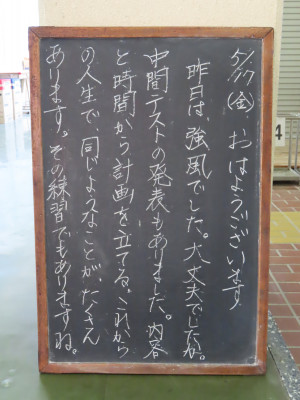 5/17(金)おはようございます
昨日は、強風でした。大丈夫でしたか。
中間テストの発表もありました。内容
と時間から計画を立てる。これから
の人生で、同じようなことが、たくさん
あります。その練習でもありますね。
4